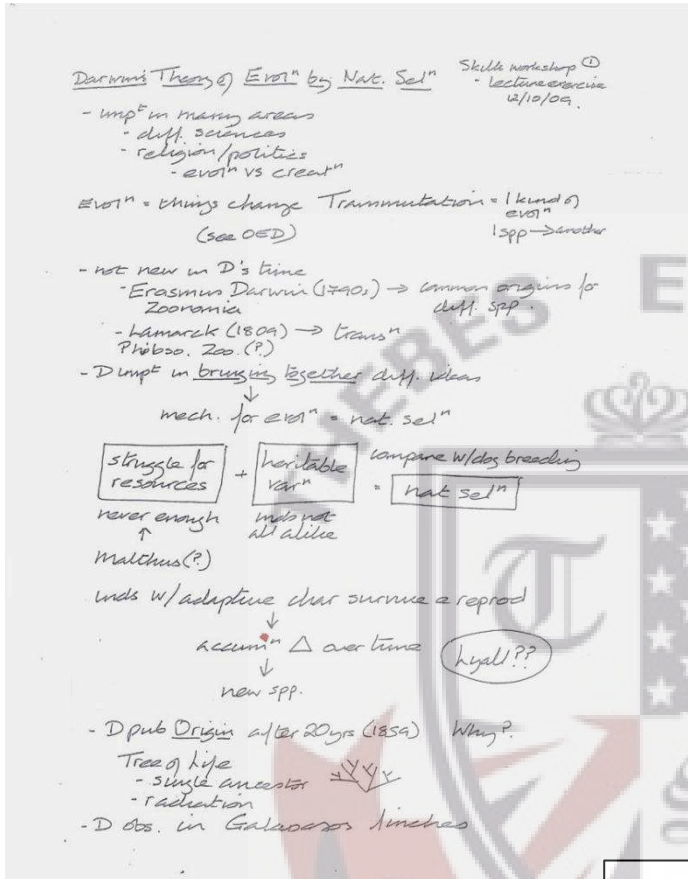 Darwin's Theory of Evolⁿ by Nat. Selⁿ
Skills workshop ①
- lecture exercise
12/10/09.
- impᵗ in many areas
- diff. sciences
- religion/politics
- evolⁿ vs creatⁿ
Evolⁿ = things change Transmutation = 1 kind of
evolⁿ
(see OED) 1 spp → another
- not new in D's time
- Erasmus Darwin (1790s) → common origins for
Zoonomia diff. spp.
- Lamarck (1809) → transⁿ
Philoso. Zoo. (?)
- D impᵗ in bringing together diff. ideas
↓
mech. for evolⁿ = nat. selⁿ
compare w/dog breeding
struggle for resources + heritable varⁿ = nat selⁿ
never enough inds not
↑ all alike
Malthus (?)
inds w/ adaptive char survive & reprod
↓
accumⁿ Δ over time Lyall??
↓
new spp.
- D pub Origin after 20yrs (1859) Why?
Tree of Life
- single ancestor
- radiation
- D obs. in Galapagos finches
THEBES
E
T